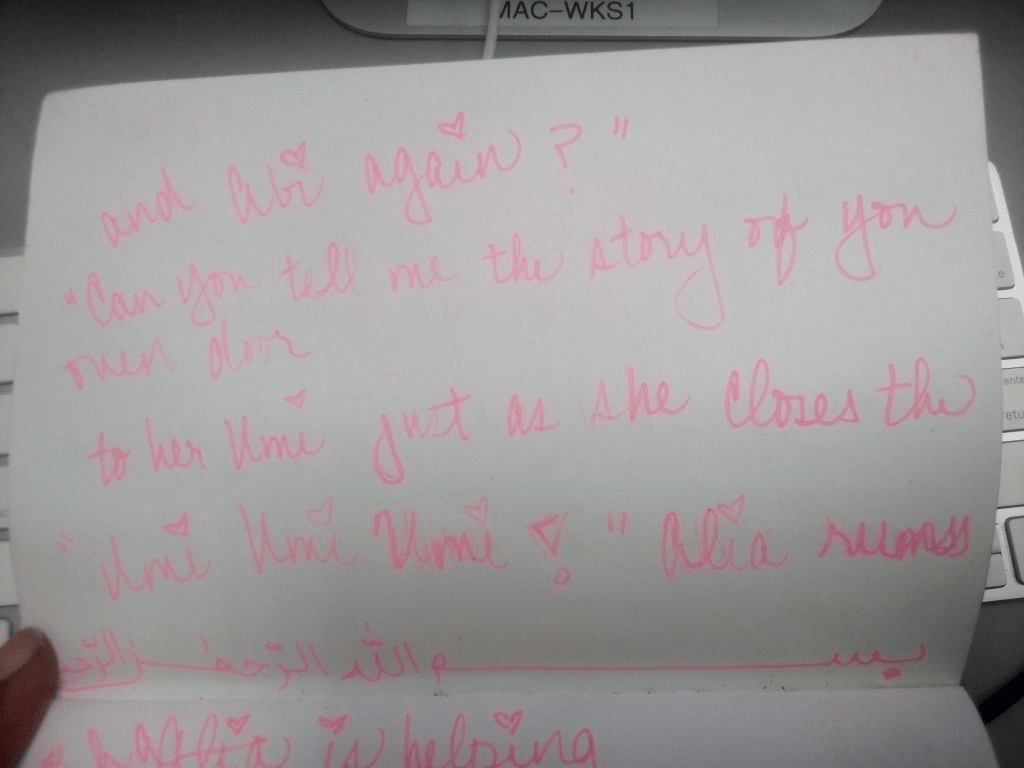 MAC-WKS1
and Abi again?"
"Can you tell me the story of you
oven door
to her Umi just as she closes the
"Umi Umi Umi!" Alia rumss
بسم الله الرّحمٰن الرّحيم
is helping